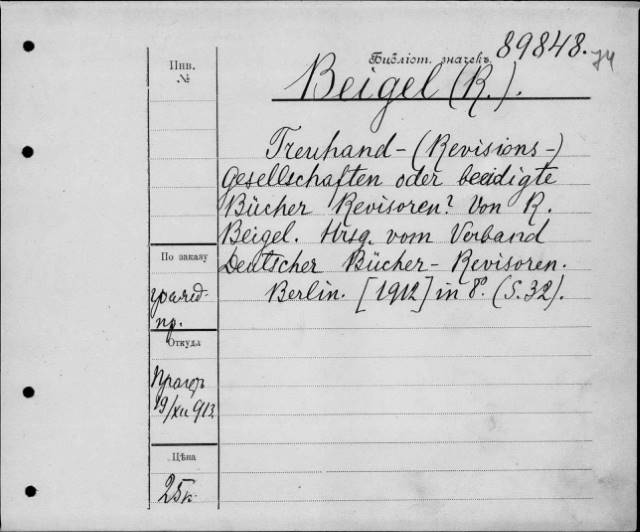 Библіот. значекъ 89848.
Инв.
№
Beigel (R.).
Treuhand-(Revisions-)
Gesellschaften oder beeidigte
Bücher Revisoren? Von R.
Beigel. Hrsg. vom Verband
Deutscher Bücher-Revisoren.
Berlin. [1912] in 8º. (S. 32).
По заказу
пр.
Откуда
19/XII 913
Цѣна
25к